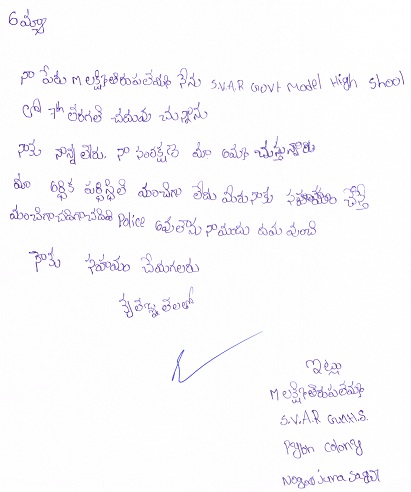 నా పేరు M లక్ష్మీతిరుపతమ్మ నేను S.V.A.R GOVT Model High Shool
లో 7th తరగతి చదువు చున్నాను
నాకు నాన్న లేరు. నా సంరక్షణ మా అమ్మ చూస్తున్నారు
మా ఆర్థిక పరిస్థితి మంచిగా లేదు మీరు నాకు సహాయం చేస్తే
మంచిగా చదివి Police అవుతాను నా ముందు
నాకు సహాయం చేయగలరు
ఇట్లు
M లక్ష్మీతిరుపతమ్మ
S.V.A.R GMHS.
Pylon colony
Nagarjuna sagar